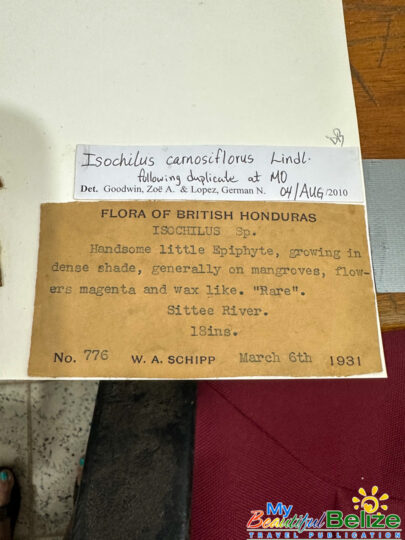 Isochilus carnosiflorus Lindl.
following duplicate at MO
Det. Goodwin, Zoë A. & Lopez, German N. 04/AUG/2010
FLORA OF BRITISH HONDURAS
ISOCHILUS Sp.
Handsome little Epiphyte, growing in
dense shade, generally on mangroves, flow-
ers magenta and wax like. "Rare".
Sittee River.
18ins.
No. 776 W. A. SCHIPP March 6th 1931
My
Beautiful Belize
TRAVEL PUBLICATION